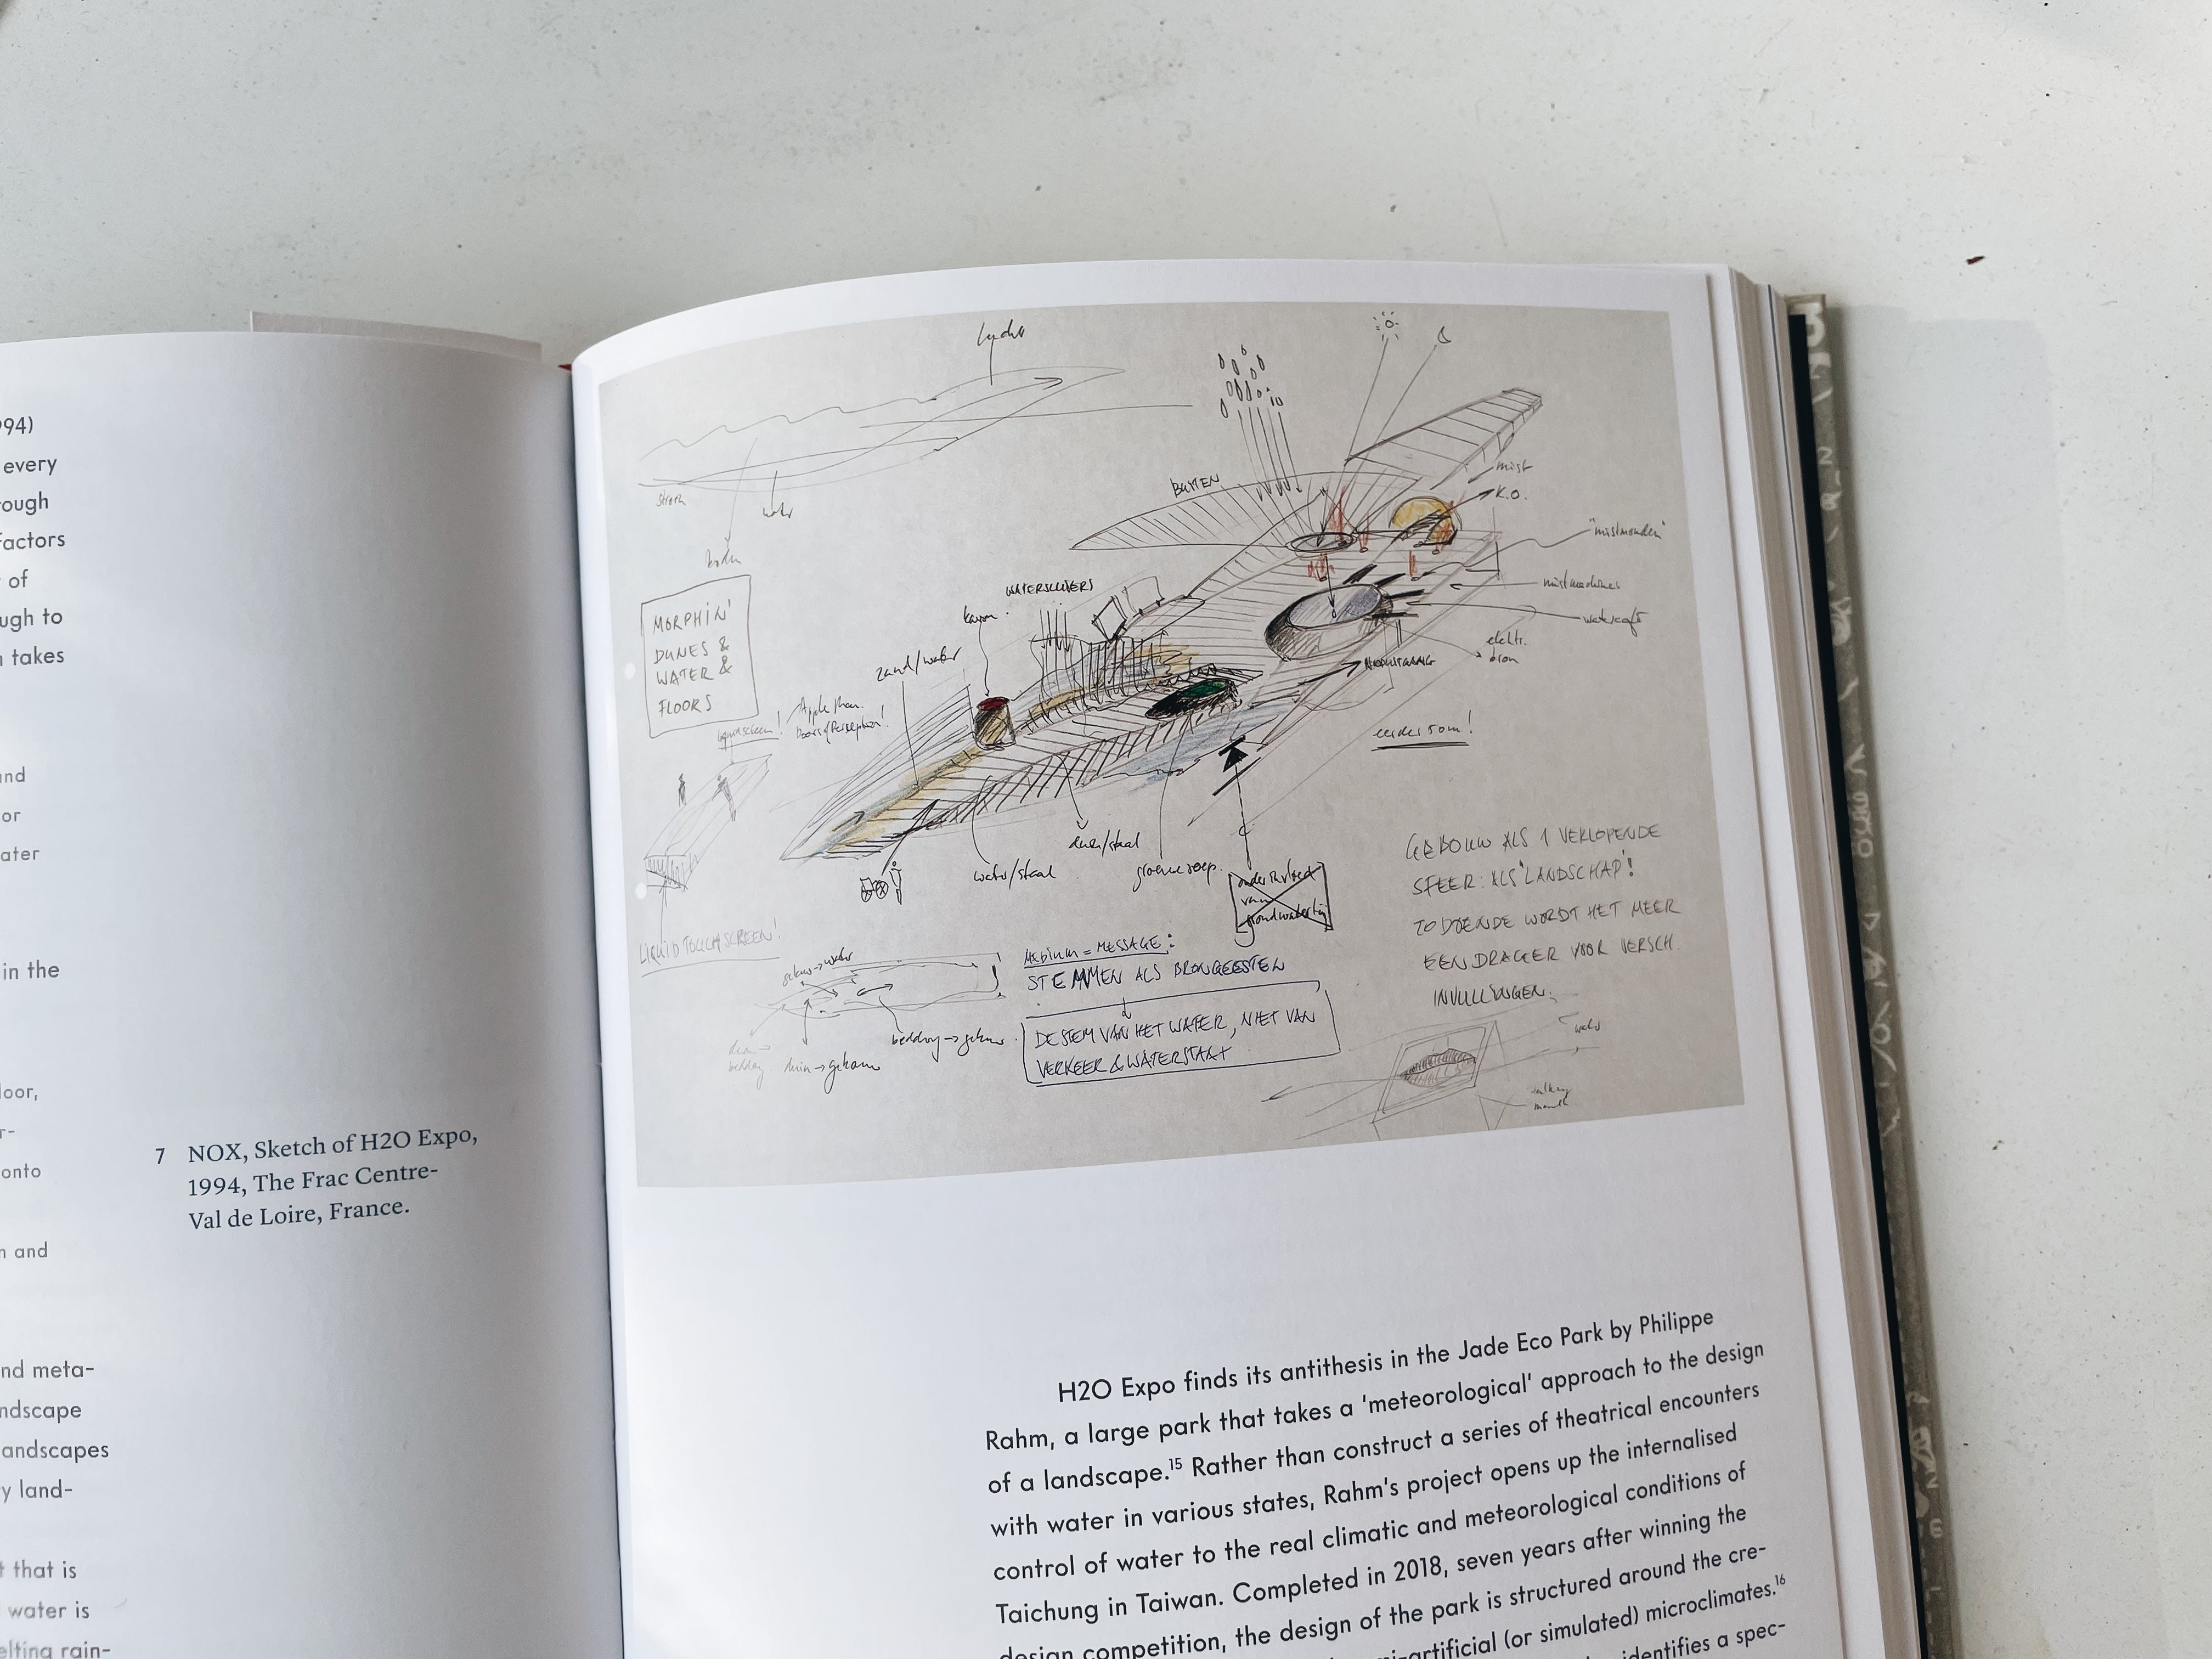 994)
every
rough
factors
of
ugh to
takes
and
or
ater
in the
loor,
r-
onto
n and
nd meta-
ndscape
andscapes
y land-
t that is
water is
elting rain-
7 NOX, Sketch of H2O Expo,
1994, The Frac Centre-
Val de Loire, France.
water
BUITEN
mist
K.O.
"mistmonden"
mistmachines
WATERSLUIERS
MORPHIN'
DUNES &
WATER &
FLOORS
zand/water
Doors of Perception!
NOODUITGANG
elektr.
bron
duin/staal
water/staal
groene soep
van
LIQUID TOUCHSCREEN!
MEDIUM = MESSAGE:
STEMMEN ALS BRONGEESTEN
DE STEM VAN HET WATER, NIET VAN
VERKEER & WATERSTAAT
GEBOUW ALS 1 VERLOPENDE
SFEER: ALS 'LANDSCHAP'!
ZODOENDE WORDT HET MEER
EEN DRAGER VOOR VERSCH.
INVULLINGEN.
water
talking
mouth
H2O Expo finds its antithesis in the Jade Eco Park by Philippe
Rahm, a large park that takes a 'meteorological' approach to the design
of a landscape.15 Rather than construct a series of theatrical encounters
with water in various states, Rahm's project opens up the internalised
control of water to the real climatic and meteorological conditions of
Taichung in Taiwan. Completed in 2018, seven years after winning the
design competition, the design of the park is structured around the cre-
artificial (or simulated) microclimates.16
identifies a spec-